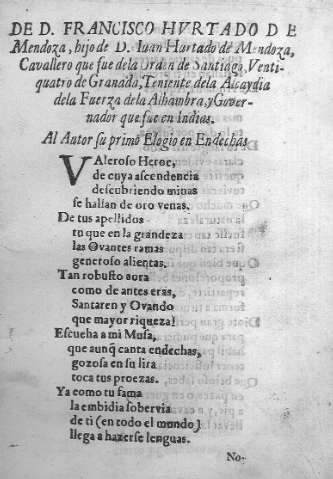 DE D. FRANCISCO HVRTADO DE
Mendoza, hijo de D. Iuan Hurtado de Mendoza,
Cavallero que fue de la Orden de Santiago, Venti-
quatro de Granada, Teniente dela Alcaydia
dela Fuerza dela Alhambra, y Gover-
nador que fue en Indias.
Al Autor su primo Elogio en Endechas
VAleroso Heroe,
de cuya ascendencia
descubriendo minas
se hallan de oro venas.
De tus apellidos
tu que en la grandeza
las Ovantes ramas
generoso alientas.
Tan robusto aora
como de antes eras,
Santaren y Ovando
que mayor riqueza!
Escucha a mi Musa,
que aunq̃ canta endechas,
gozosa en su lira
toca tus proezas.
Ya como tu fama
la embidia sobervia
de ti (en todo el mundo)
llega a hazerse lenguas.
No-